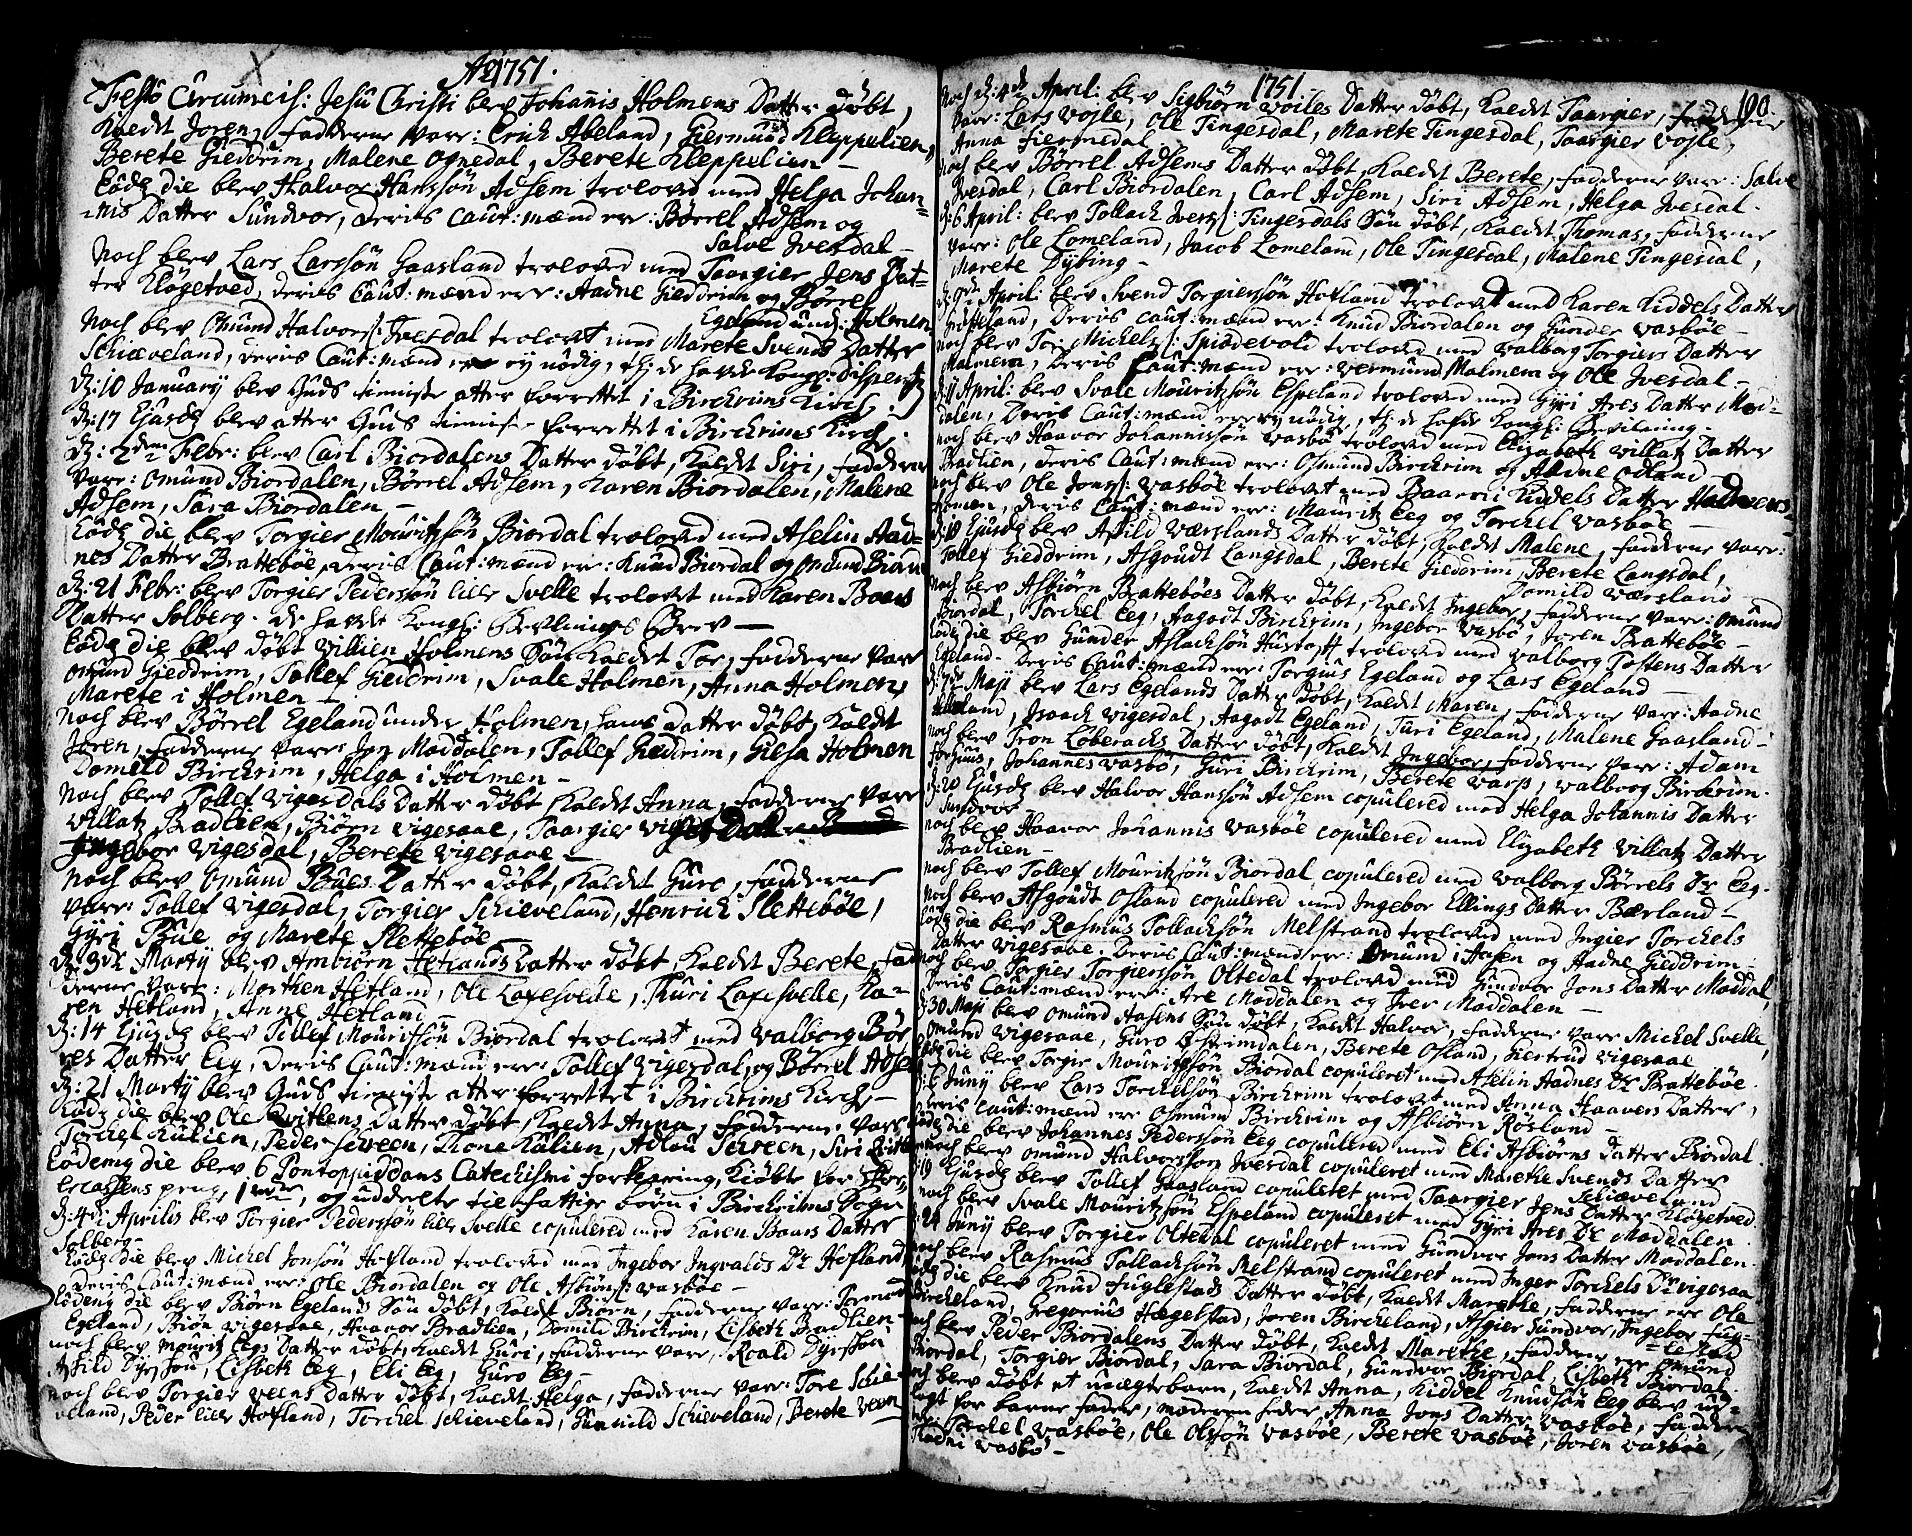 Ao 1751.
Festo Circumcis: Jesu Christi blev Johanis Holmens Datter døbt,
kaldt Joren, fadderne vare: Erich Abeland, Giermund Kleppelien,
Berete Gieddrim, Malene Ognedal, Berete Kleppelien –
Eodz die blev Halvor Hanssøn Adsem trolovd med Helga Johan-
nis Datter Sundvor, deris Caut: mænd ere: Børrel Adsem og
Salve Ivesdal –
Noch blev Lars Larssøn Gaasland trolovd med Taargier Jens Dat-
ter Kløgetved, deris Caut: mænd ere: Aadne Gieddrim og Børrel
Egeland und: Holmen
Noch blev Omund Halvors: Ivesdal trolovet med Marete Svends Datter
Schiæveland, deris Caut: mænd ere ey nødig, thi de hafde Kongl: dispensatz
D: 10 January blev Guds tieniste atter forrettet i Birchrims Kirche.
D: 17 Ejusdz blev atter Guds tieniste forrettet i Birchrims Kirch
D: 2den Febr: blev Carl Biordalens Datter døbt, kaldt Siri, fadderne
vare: Omund Biordalen, Børrel Adsem, Karen Biordalen, Malene
Adsem, Sara Biordalen –
Eodz die blev Torgier Mouritzsøn Biordal trolovd med Aselin Aad-
nes Datter Brattebøe, deris Caut: mænd ere: Knud Biordal og Omund Biord
D: 21 Febr: blev Torgier Pederssøn lille Svelle trolovet med Karen Baars
Datter Solberg. de hafde Kongl: Bevilnings Brev –
Eodz die blev døbt Villien Holmens Søn kaldet Tor, fadderne vare
Omund Gieddrim, Tollef Gieddrim, Svale Holmen, Anna Holmen,
Marete i Holmen –
Noch blev Børrel Egeland under Holmen, hans Datter døbt, kaldt
Joren, fadderne vare: Jon Moddalen, Tollef Gieddrim, Giesa Holmen
Domeld Birchrim, Helga i Holmen –
Noch blev Tollef Vigesdals Datter døbt kaldt Anna, fadderne vare
Villatz Bradlien, Biørn Vigesaae, Taargier Vigesdal
Ingebor Vigesdal, Berete Vigesaae –
Noch blev Omund Bues Datter døbt, kaldt Guro, fadderne
vare: Tollef Vigesdal, Torgier Schieveland, Henrich Slettebøe,
Gyri Bue og Marete Slettebøe
D: 3de Martij blev Ambiørn Hetlands Datter døbt, kaldt Berete, fad
derne vare: Morthen Hetland, Ole Laxesvelle, Thuri Laxesvelle, Ka-
ren Hetland, Anne Hetland –
D: 14 Ejusdz blev Tollef Mouritssøn Biordal trolovet med Valborg Bør
res Datter Eeg, deris Caut: mænd ere: Tollef Vigesdal, og Børrel Adse
D: 21 Martij blev Guds tieniste atter forrettet i Birchrims Kirche –
Eodz die blev Ole Qvitlens Datter døbt, kaldt Anna, fadderne vare
Torchel Kulien, Peder Schreen, Thone Kulien, Adlou Schreen, Siri
Eodemq die blev 6 Pontoppiddans Catechismi forklaring, kiøbte for
Cassens peng, og uddeelte til fattige børn i Birchrims Sogn
D: 4de Aprilis blev Torgier Pederssøn lille Svelle copulered med Karen Baars Datter
Solberg –
Eodz die blev Michel Jonsøn Hofland trolovd med Ingebor Ingvalds Dr Hofland,
deris Caut: mænd ere: Ole Biordalen og Ole Asbiøns: Vasbøe –
Eodemq die blev Biørn Egelands Søn døbt, kaldt Biørn, fadderne vare:
Egeland, Biøn Vigesaae, Haavor Bradlien, Domild Birchrim, Lisbeth Bradlien –
Noch blev Mouritz Eegs Datter døbt, kaldt Guri, fadderne vare, Roald Dyrssøn
Arild Dyrssøn, Lisbeth Eeg, Eli Eeg, Guro Eeg –
Noch blev Torgier Veens Datter døbt, kaldt Helga, fadderne vare: Tore Schie-
veland, Peder lille Hofland, Torchel Schieveland, Gunild Schieveland, Berete Veen –
1751.
190.
Noch D: 4de April: blev Sigbiørn Vojles Datter døbt, kaldt Taargier, fadderne
vare: Lars Vojle, Ole Tingesdal, Marete Tingesdal, Taargier Vojle,
Anna Fiermedal –
Noch blev Børrel Adsems Datter døbt, kaldt Berete, fadderne vare: Salve
Ivesdal, Carl Biordalen, Carl Adsem, Siri Adsem, Helga Ivesdal.
D: 6 April: blev Tollach Iverss: Tingesdals Søn døbt, kaldt Thomas, fadderne
vare: Ole Lomeland, Jacob Lomeland, Ole Tingesdal, Malene Tingesdal,
Marete Dybing –
April: blev Svend Torgierssøn Hofland trolovet med Karen Kiddels Datter
deris Caut: mænd ere: Knud Biordalen og Gunder Vasbøe –
Noch blev Tor Michels: Spiodevold trolovd med Valborg Torgiers Datter
Malmera, deris Caut: mænd ere: Vermund Malmera og Ole Ivesdal –
D: 11 April: blev Svale Mouritzsøn Espeland trolovd med Gyri Ares Datter Mod-
dalen, deris Caut: mænd ere ey nødig, thi de hafde Kongl: Bevilning –
Noch blev Haavor Johannissøn Vasbø trolovd med Elizabeth Villatz Datter
Bradlien, deris Caut: mænd ere: Osmund Birchrim og Aadne Odland –
Noch blev Ole Jons: Vasbøe trolovet med Baarni Kiddels Datter
Homen, deris Caut: mænd ere: Mauritz Eeg og Torchel Vasbøe –
D: 18 Ejusdz blev Arild Værslands Datter døbt, kaldt Malene, fadderne vare:
Tollef Gieddrim, Asgoudt Langsdal, Berete Gieddrim, Berete Langsdal,
Domild Værsland –
Noch blev Asbiørn Brattebøes Datter døbt, kaldt Ingebor, fadderne vare: Omund
Biordal, Torchel Eeg, Aagodt Birchrim, Ingebor Vasbø, Joren Brattebøe –
Eodz die blev Gunder Aslachsøn Hustoft trolovd med Valborg Tostens Datter
Egeland. Deris Caut: mænd ere: Torgius Egeland og Lars Egeland –
D: Maij blev Lars Egelands Datter døbt, kaldt Maren, fadderne vare: Aadne
Isaach Vigesdal, Aagodt Egeland, Turi Egeland, Malene Gaasland –
Noch blev Tron Løberachs Datter døbt, kaldt Ingebor, fadderne vare: Adam
Johannes Vasbø, Guri Birchrim, Berete Varp, Valborg Birchrim.
D: 20 Ejusdz blev Halvor Hanssøn Adsem copulered med Helga Johannis Datter
Sundvor –
Noch blev Haavor Johannis Vasbøe copulered med Elizabeth Villatz Datter
Bradlien –
Noch blev Tollef Mouritzsøn Biordal copulered med Valborg Børrels Dr Eeg.
Noch blev Asgoudt Osland copulered med Ingebor Ellings Datter Bærland –
Eodz die blev Rasmus Tollachsøn Melstrand trolovd med Ingier Torchels
Datter Vigesaae. Deris Caut: mænd ere: Omund i Hasen og Aadne Gieddrim –
Noch blev Torgier Torgierssøn Oltedal trolovd med Sundvor Jons Datter Moddal,
Deris Caut: mænd ere: Are Moddalen og Iver Moddalen –
D: 30 Maij blev Omund Aasens Søn døbt, kaldt Halvor, fadderne vare Michel Svelle,
Omund Vigesaae, Guro Østrimdalen, Berete Osland, Giertrud Vigesaae
Eodz die blev Torgir Mouritzsøn Biordal copuleret med Aselin Aadnes Dr Brattebøe.
D: 6 Junij blev Lars Torchelsøn Birchrim trolovet med Anna Haavors Datter,
Deris Caut: mænd ere Osmund Birchrim og Asbiørn Røsland –
Eodz die blev Johannes Pederssøn Eeg copulered med Eli Asbiørns Datter Biordal.
Noch blev Omund Halvorssøn Ivesdal copuleret med Marethe Svends Datter
Schiæveland –
D: 19 Ejusdz blev Tollef Gaasland copuleret med Taargier Jens Datter Kløgetved
Noch blev Svale Mouritzsøn Espeland copuleret med Gyri Ares Dr Moddalen
D: 24 Junij blev Torgier Oltedal copuleret med Sundvor Jons Datter Moddalen.
Noch blev Rasmus Tollachsøn Melstrand copuleret med Inger Torchels Dr Vigesaa
Eodz die blev Knud Fuglestads Datter døbt, kaldt Marethe, fadderne ere Ole
Bircheland, Gregorius Hægelstad, Joren Bircheland, Asgier Sundvor, Ingebor Fug-
lestad
Noch blev Peder Biordalens Datter døbt, kaldt Marethe, fadderne ere Omund
Biordal, Torgier Biordal, Sara Biordal, Gundvor Biordal, Lisbeth Biordal.
Noch blev døbt et uægte barn, kaldt Anna, Kiddel Knudsøn Eeg blev ud-
lagt for barne fader, moderen heder Anna Jons Datter Vasbøe, faddere
Torchel Vasbøe, Ole Olssøn Vasbøe, Berete Vasbøe, Joren Vasbøe,
Vasbø –